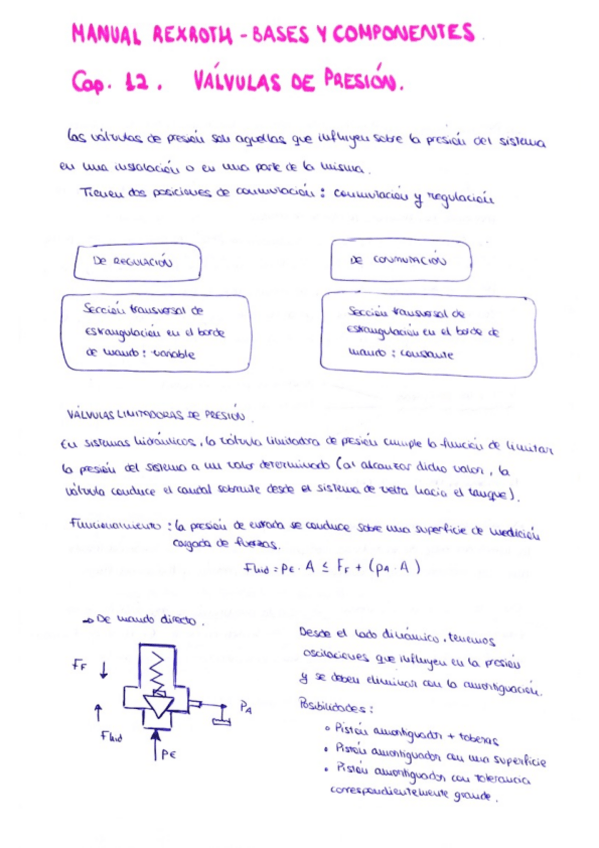 MANUAL REXROTH - BASES Y COMPONENTES
Cap. 12. VÁLVULAS DE PRESIÓN.
Las válvulas de presión son aquellas que influyen sobre la presión del sistema
en una instalación o en una parte de la misma.
Tienen dos posiciones de conmutación : conmutación y regulación
DE REGULACIÓN
Sección transversal de
estrangulación en el borde
de mando : variable
DE CONMUTACIÓN
Sección transversal de
estrangulación en el borde de
mando : constante
VÁLVULAS LIMITADORAS DE PRESIÓN.
En sistemas hidráulicos, la válvula limitadora de presión cumple la función de limitar
la presión del sistema a un valor determinado (al alcanzar dicho valor, la
válvula conduce el caudal sobrante desde el sistema de vuelta hacia el tanque).
Funcionamiento : la presión de entrada se conduce sobre una superficie de medición
cargada de fuerzas.
Fhid = pE · A ≤ FF + (pA · A)
→ De mando directo.
FF
Fhid
PE
PA
Desde el lado dinámico, tenemos
oscilaciones que influyen en la presión
y se deben eliminar con la amortiguación.
Posibilidades :
• Pistón amortiguador + toberas
• Pistón amortiguador con una superficie
• Pistón amortiguador con tolerancia
correspondientemente grande.